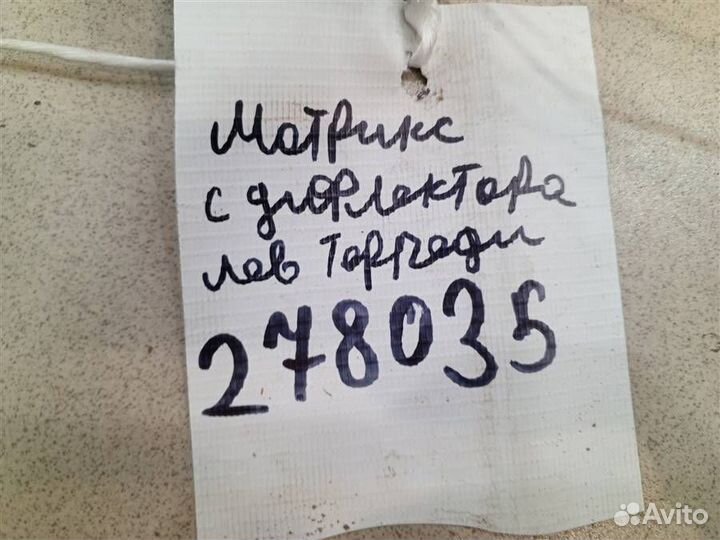 Матрикс
с дифлектора
лев Торпеди
278035
Avito